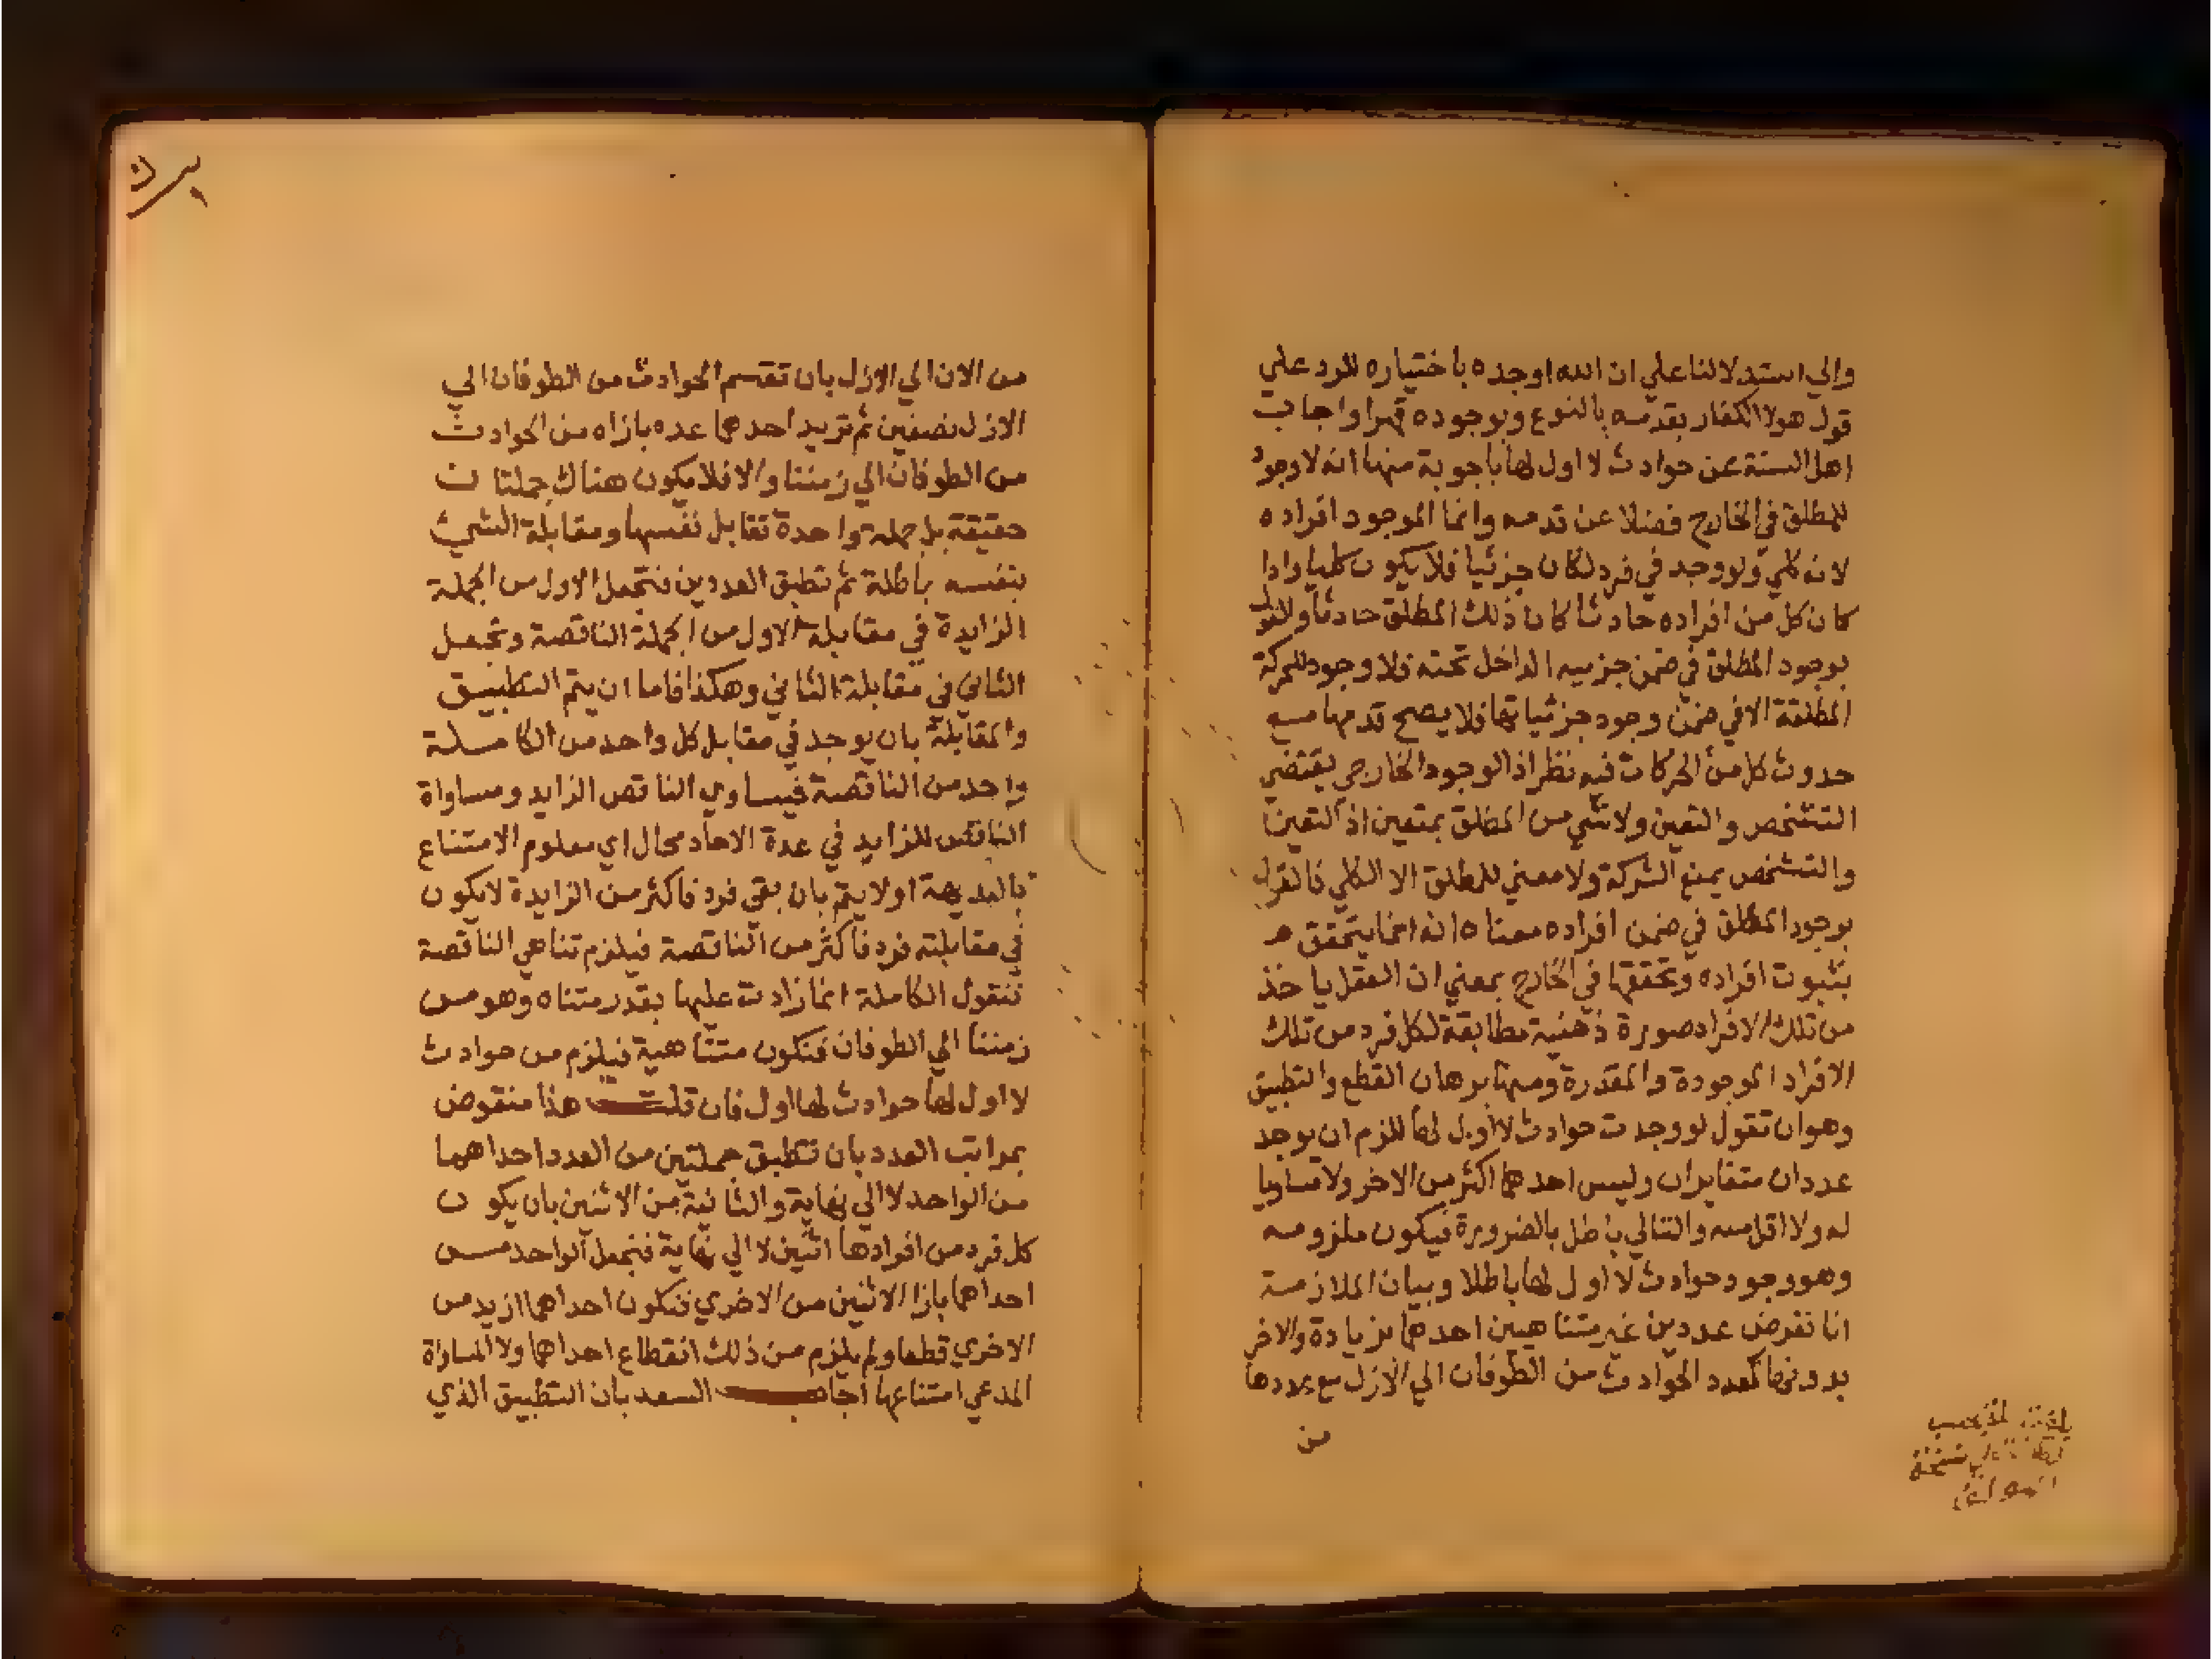 والي استدلالنا علي ان الله اوجده باختياره للرد علي
قول هولا الكفار بقدمه بالنوع وبوجوده قهرا واجاب
اهل السنة عن حوادث لا اول لها باجوبة منها انه لا وجود
للمطلق في الخارج فضلا عن قدمه وانما الموجود افراده
لانه كلي ولو وجد في فرد لكان جزئيا فلا يكون كليا واذا
كان كل من افراده حادثا كان ذلك المطلق حادثا والقول
بوجود المطلق في ضمن جزييه الداخل تحته فلا وجود للحركة
المطلقة الا في ضمن وجود جزئياتها فلا يصح قدمها مع
حدوث كل من الحركات فيه نظر اذ الوجود الخارجي يقتضي
التشخص والتعين ولا شي من المطلق بمتعين اذ التعين
والتشخص يمنع الشركة ولا معني للمطلق الا الكلي فالقول
بوجود المطلق في ضمن افراده معناه انه انما يتحقق
بثبوت افراده وتحققها في الخارج بمعني ان العقل ياخذ
من تلك الافراد صورة ذهنية مطابقة لكل فرد من تلك
الافراد الموجودة والمقدرة ومنها برهان القطع والتطبيق
وهو ان تقول لو وجدت حوادث لا اول لها للزم ان يوجد
عددان متغايران وليس احدهما اكثر من الاخر ولا مساويا
له ولا اقل منه والتالي باطل بالضرورة فيكون ملزومه
وهو وجود حوادث لا اول لها باطلا وبيان الملازمة
انا نفرض عددين غير متناهيين احدهما بزيادة والاخر
بدونها كعدد الحوادث من الطوفان الي الازل مع عددها
من
من الان الي الازل بان تقسم الحوادث من الطوفان الي
الازل نصفين ثم تزيد احدهما عده بازاه من الحوادث
من الطوفان الي زمننا والا فلا يكون هناك جملتان
حقيقة بل جملة واحدة تقابل نفسها ومقابلة الشي
بنفسه باطلة ثم تطبق العددين فتجعل الاول من الجملة
الزايدة في مقابلة الاول من الجملة الناقصة وتجعل
الثاني في مقابلة الثاني وهكذا فاما ان يتم التطبيق
والمقابلة بان يوجد في مقابل كل واحد من الكاملة
واحد من الناقصة فيساوي الناقص الزايد ومساواة
الناقص للزايد في عدة الاحاد محال اي معلوم الامتناع
بالبديهة او لا يتم بان بقي فرد فاكثر من الزايدة لا يكون
في مقابلته فرد فاكثر من الناقصة فيلزم تناهي الناقصة
فنقول الكاملة انما زادت عليها بقدر متناه وهو من
زمننا الي الطوفان فتكون متناهية فيلزم من حوادث
لا اول لها حوادث لها اول فان قلت هذا منقوض
بمراتب العدد بان تطبق جملتين من العدد احداهما
من الواحد لا الي نهاية والثانية من الاثنين بان يكون
كل فرد من افرادها اثنين لا الي نهاية فتجعل الواحد من
احداهما بازا الاثنين من الاخري فتكون احداهما ازيد من
الاخري قطعا ولم يلزم من ذلك انقطاع احداهما ولا المساواة
المدعي امتناعها اجاب السعد بان التطبيق الذي